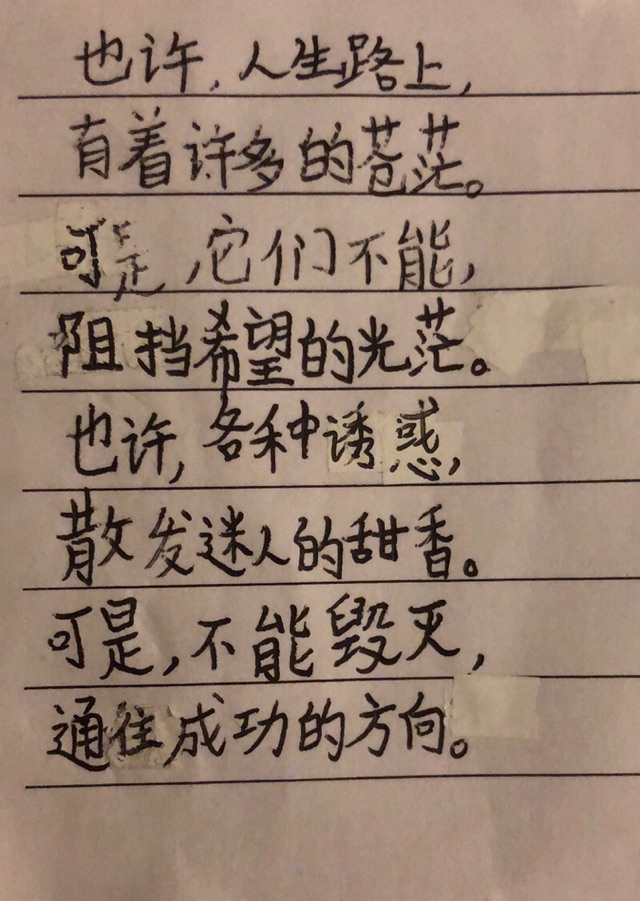 也许，人生路上，
有着许多的苍茫。
可是，它们不能，
阻挡希望的光茫。
也许，各种诱惑，
散发迷人的甜香。
可是，不能毁灭，
通往成功的方向。